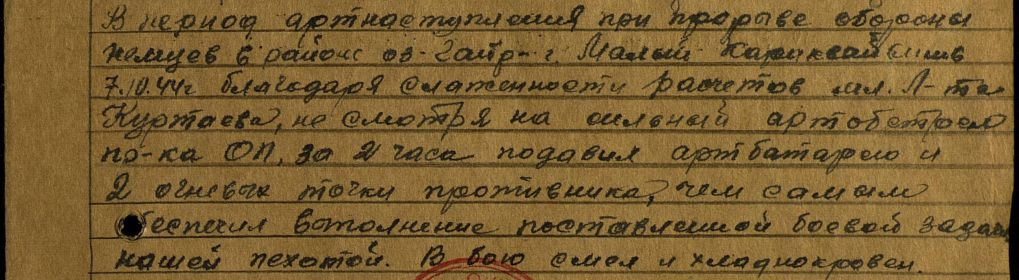 В период артнаступления при прорыве обороны
немцев в районе оз. Чапр - г. Малый Кариквайвишь
7.10.44г благодаря слаженности расчетов мл. Л-та
Куртаева, не смотря на сильный артобстрел
пр-ка ОП, за 2 часа подавил артбатарею и
2 огневых точки противника, чем самым
обеспечил выполнение поставленной боевой задачи
нашей пехотой. В бою смел и хладнокровен.